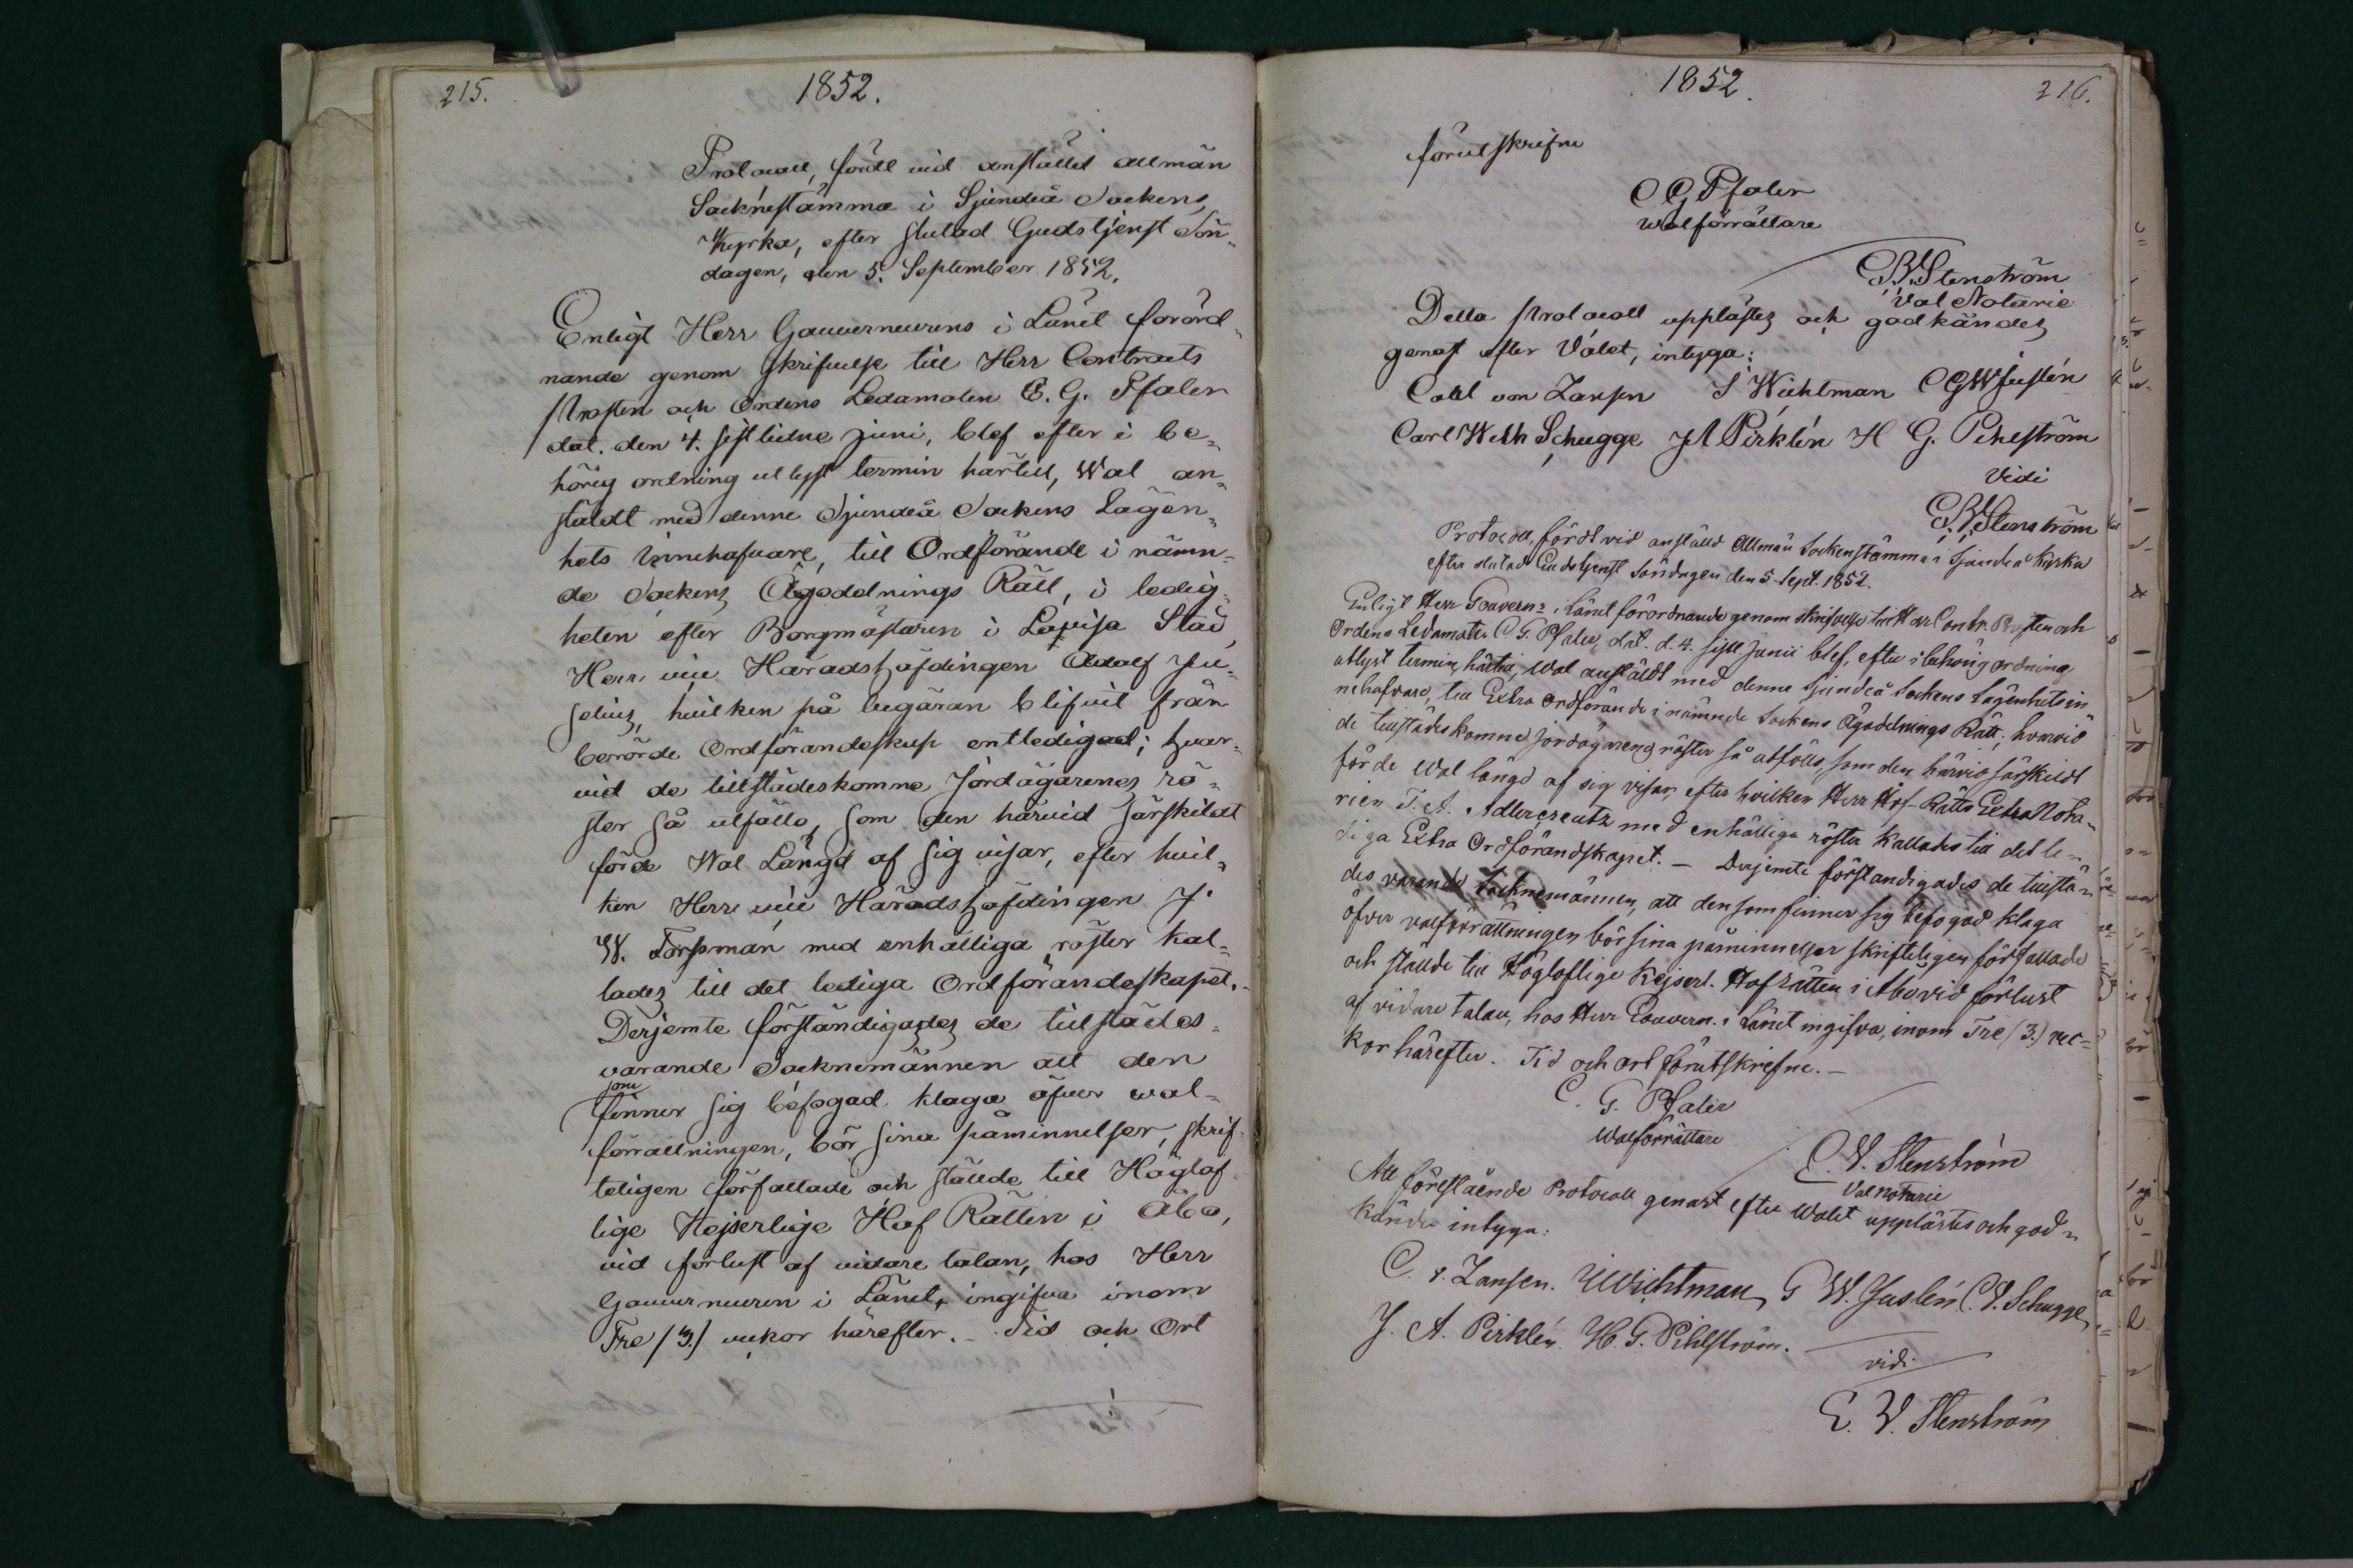 215.
1852.
Protocoll, fördt vid anstäld allmän
Socknestämma i Sjundeå Sockens
Kyrka, efter slutad Gudstjenst Sön-
dagen, den 5. September 1852.
Enligt Herr Gouverneurens i Länet förord-
nande genom skrifvelse till Herr Contracts
Prosten och Ordens Ledamoten C. G. Pfaler
dat. den 4. sistlidne Juni, blef efter i be-
hörig ordning utlyst termin härtill, Wal an-
stäldt med denne Sjundeå Sockens Lägen-
hets innehafvare, till Ordförande i nämn-
de Sockens Ägodelnings Rätt, i ledig-
heten efter Borgmästaren i Lovisa Stad,
Herr vice Häradshöfdingen Adolf
hvilken på begäran blifvit från
berörde Ordförandeskap entledigad; hvar-
vid de tillstädeskomne Jordägarenes rö-
ster så utföllo, som den härvid särskildt
förde Wal Längd af sig visar, efter hvil-
ken Herr vice Häradshöfdingen J.
W. Forssman med enhälliga röster kal-
lades till det lediga Ordförandeskapet.
Derjemte förständigades de tillstädes-
varande Socknemännen att den
som
finner sig befogad klaga öfver wal-
förrättningen, bör sina påminnelser, skrif-
teligen författade och stälde till Höglof-
lige Kejserlige Hof Rätten i Åbo,
vid förlust af vidare talan, hos Herr
Gouverneuren i Länet, ingifva inom
Tre /3./ veckor härefter. Tid och Ort
1852.
216.
förutskrifne
C G Pfaler
Walförrättare
C. V. Stenström
Val Notarie
Detta Protocoll upplästes och godkändes
genast efter Valet, intyga:
Carl von Zansen S Wichtman C G W Juslén
Carl Wilh Schugge J A Pirklén H G. Pihlström
Vidi
C. V. Stenström
Protocoll, fördt vid anställd Allmän Sockenstämma i Sjundeå Kyrka
efter slutad Gudstjenst Söndagen den 5 Sept. 1852.
Enligt Herr Gouvern: i Länet förordnande genom skrifvelse till Herr Contr. Prosten och
Ordens Ledamoten C. G. Pfaler, dat. d. 4. sistl Junii blef, efter i behörig ordning
utlyst termin, härtill, Wal anstäldt med denne Sjundeå Sockens Lägenhetsin
nehafvare, till Extra Ordförande i nämnde Sockens Ägodelnings Rätt; hvarvid
de tillstädeskomne jordägareng röster så utföllo, som den härvid särskildt
förde Wal längd af sig visar, efter hvilken Herr Hof-Rätts Extra Nota-
rien T. A. Adlercreutz med enhälliga röster kallades till det le-
diga Extra Ordförandskapet. — Derjemte förständigades de tillstä-
des varande Socknemännen, att den som finner sig befogad klaga
öfver valförrättningen bör sina påminnelser skrifteligen författade
och ställde till Höglofliga Kejserl. Hofrätten i Åbo vid förlust
af vidare talan, hos Herr Gouvern. i Länet ingifva, inom Tre /3./ vec-
kor härefter. Tid och ort förutskrifne. —
C. G. Pfaler
Walförrättare
C. V. Stenström
Val notarie
Att föreslående Protocoll genast efter Walet upplästes och god-
kändes intyga:
C. v. Zansen. Wichtman, G W. Juslén, C. V. Schugge,
J. A. Pirklén. H. G. Pihlström.
vidi
C. V. Stenström